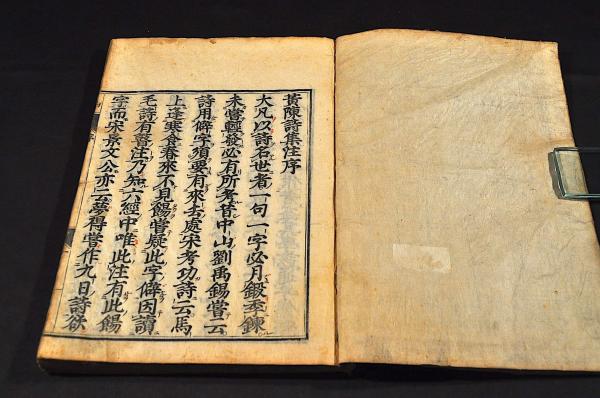 黃陳詩集注序
大凡以詩名世者一句一字必月鍛季鍊
未嘗輕發必有所考昔中山劉禹錫嘗云
詩用僻字須要有來去處宋考功詩云馬
上逢寒食春來不見餳嘗疑此字僻因讀
毛詩有瞽注乃知六經中唯此注有此餳
字而宋景文公亦云夢得嘗作九日詩欲